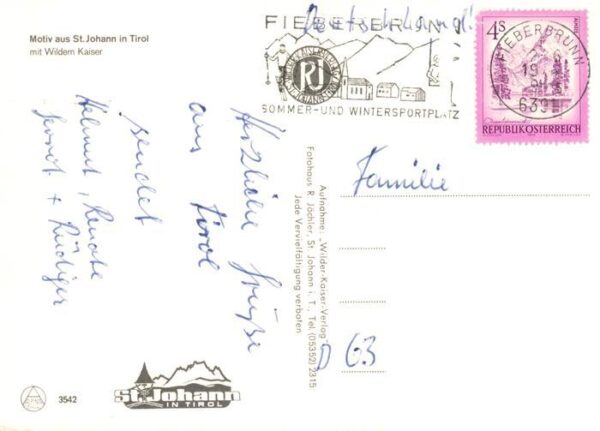 Motiv aus St. Johann in Tirol
mit Wildem Kaiser
Herzliche Grüße
aus Tirol
sendet
Helmut, Renate
+ Rüdiger
3542
St. Johann
IN TIROL
Aufnahme: „Wilder-Kaiser-Verlag"
Fotohaus R. Jöchler, St. Johann i. T., Tel. (05352) 2315
Jede Vervielfältigung verboten
Deutschland!
FIEBERBRUNN
SOMMER- UND WINTERSPORTPLATZ
FIEBERBRUNN
6391
4S
REPUBLIK ÖSTERREICH
Familie
D 63